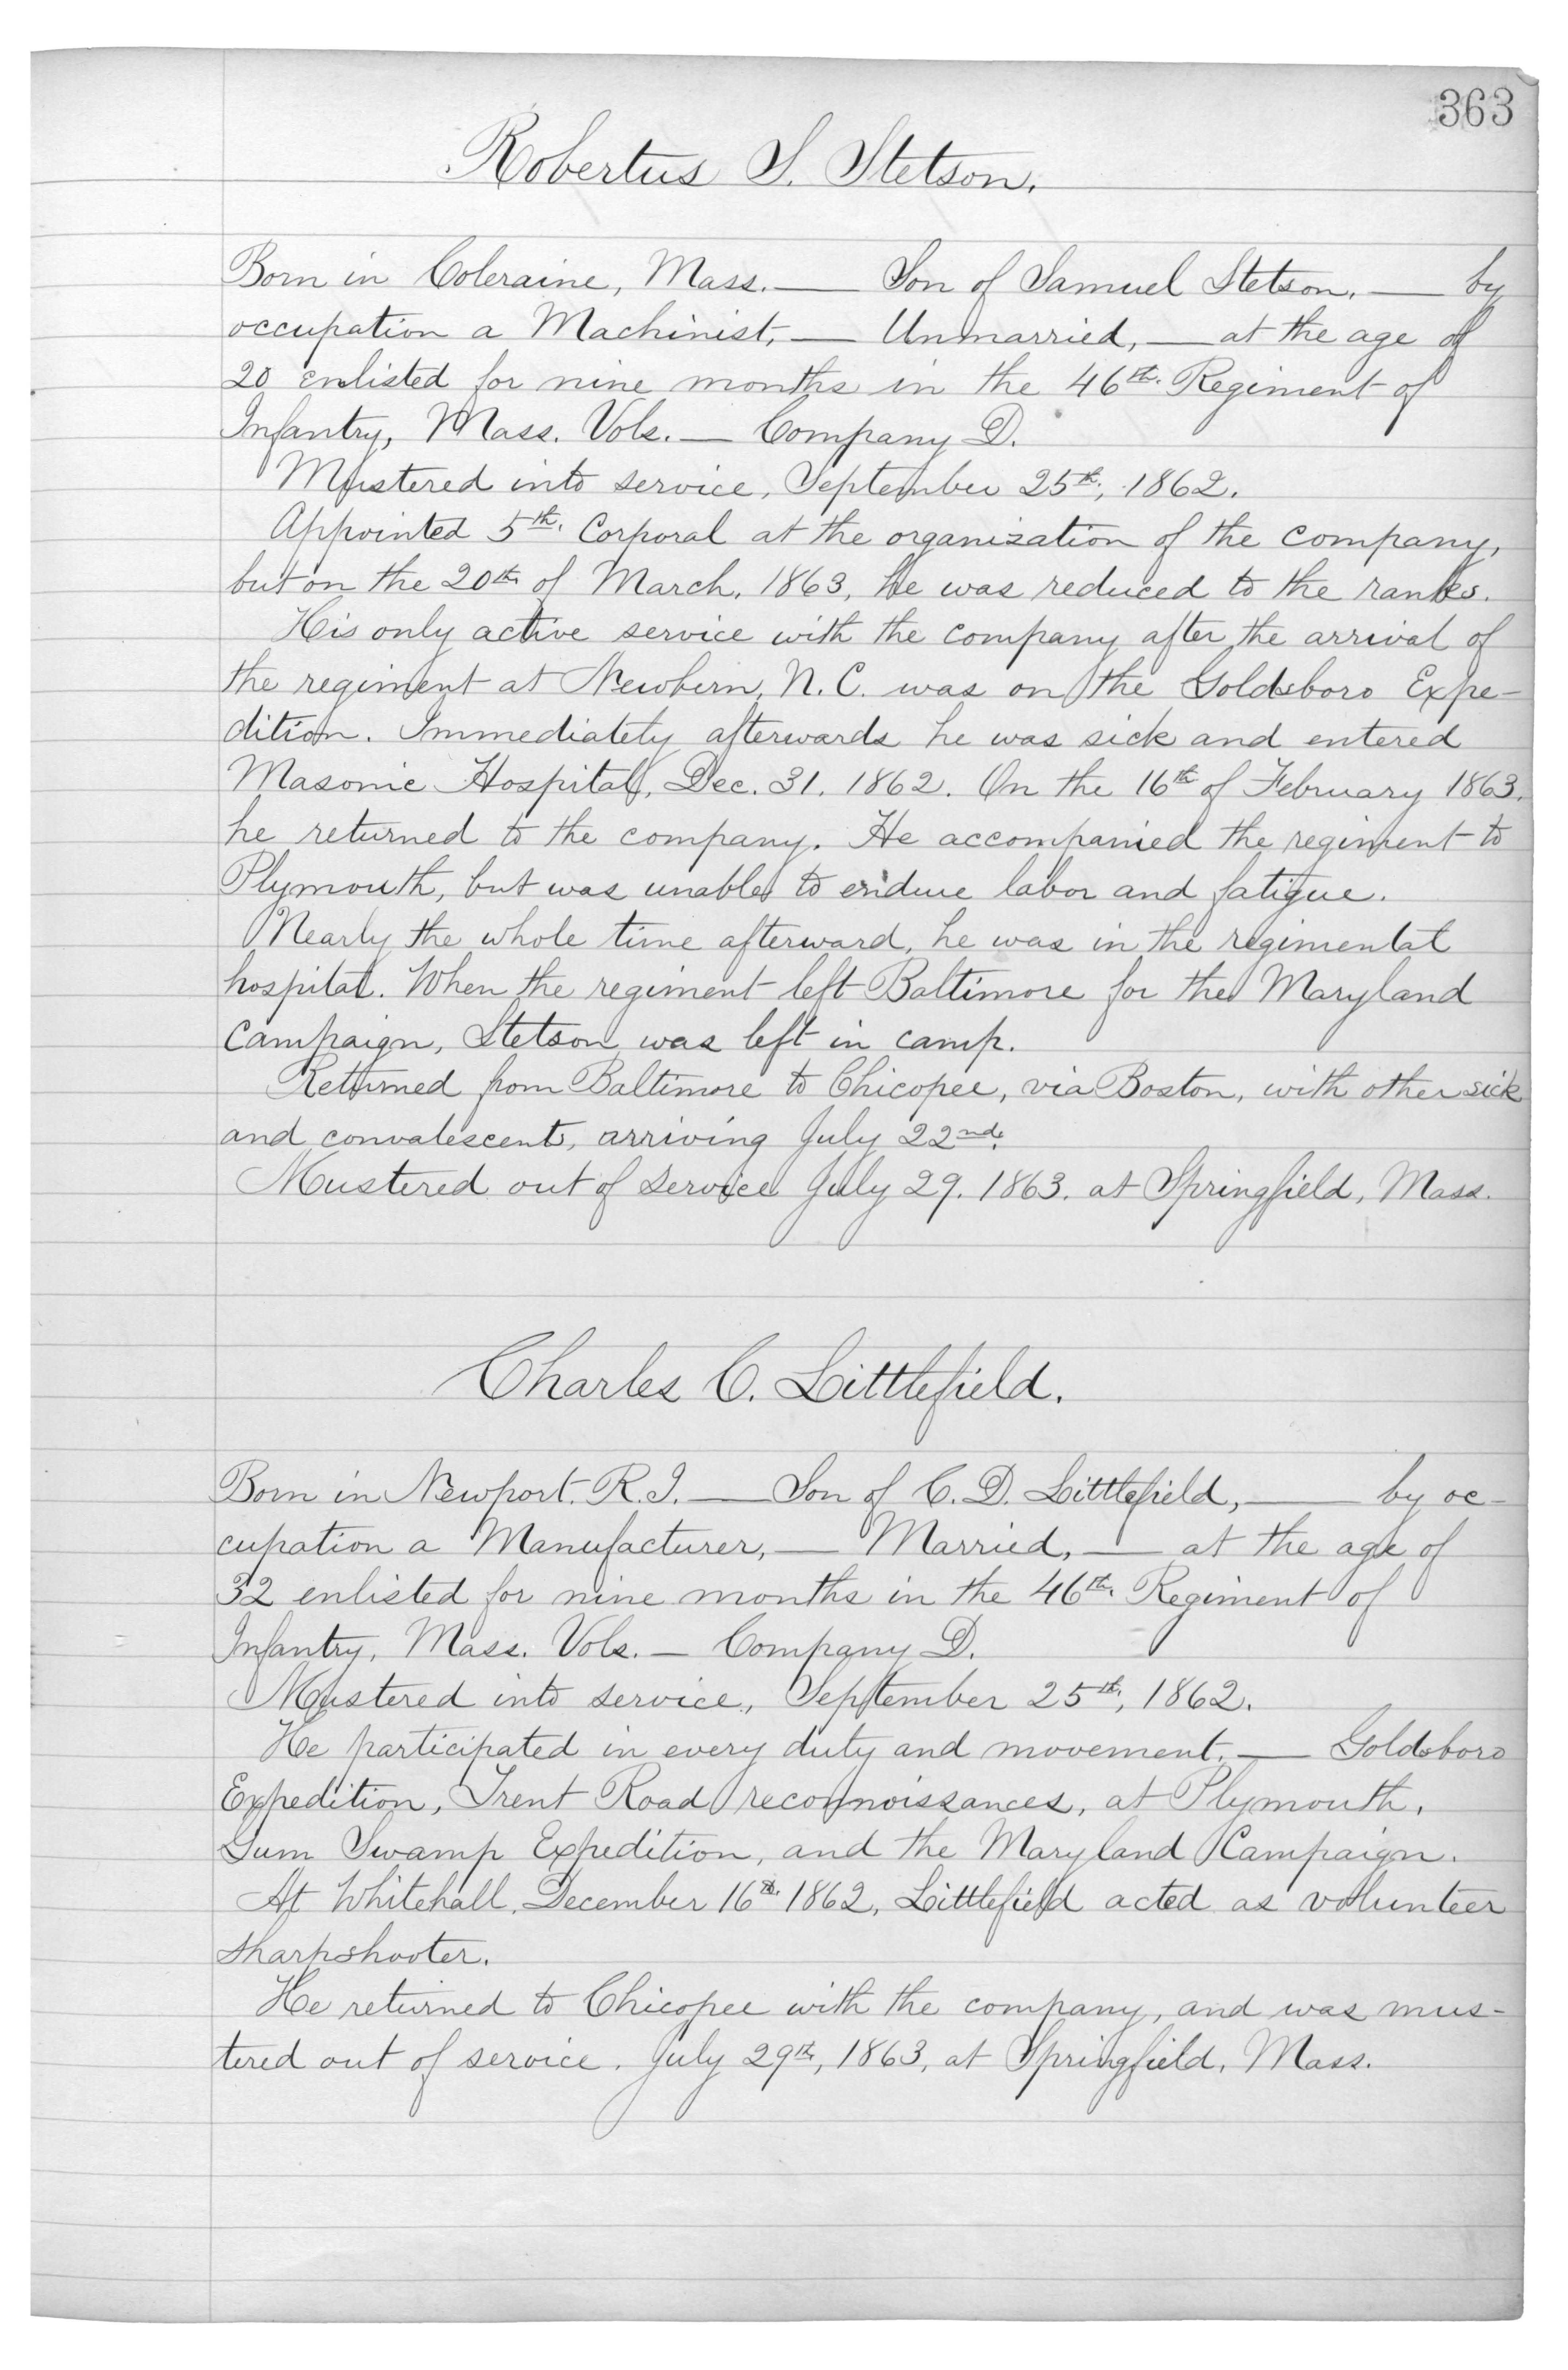 363
Robertus S. Stetson.
Born in Coleraine, Mass. — Son of Samuel Stetson. — by
occupation a Machinist, — Unmarried, — at the age of
20 enlisted for nine months in the 46th. Regiment of
Infantry, Mass. Vols. — Company D.
Mustered into service, September 25th, 1862.
Appointed 5th. Corporal at the organization of the company,
but on the 20th of March, 1863, he was reduced to the ranks.
His only active service with the company after the arrival of
the regiment at Newbern, N.C. was on the Goldsboro Expe-
dition. Immediately afterwards he was sick and entered
Masonic Hospital, Dec. 31. 1862. On the 16th of February 1863.
he returned to the company. He accompanied the regiment to
Plymouth, but was unable to endure labor and fatigue.
Nearly the whole time afterward, he was in the regimental
hospital. When the regiment left Baltimore for the Maryland
Campaign, Stetson was left in camp.
Returned from Baltimore to Chicopee, via Boston, with other sick
and convalescent, arriving July 22nd.
Mustered out of service July 29. 1863. at Springfield, Mass.
Charles C. Littlefield.
Born in Newport. R.I. — Son of C. D. Littlefield, — by oc-
cupation a Manufacturer, — Married, — at the age of
32 enlisted for nine months in the 46th. Regiment of
Infantry, Mass. Vols. — Company D.
Mustered into service, September 25th, 1862.
He participated in every duty and movement. — Goldsboro
Expedition, Trent Road reconnoissances, at Plymouth,
Gum Swamp Expedition, and the Maryland Campaign.
At Whitehall, December 16th. 1862, Littlefield acted as volunteer
sharpshooter.
He returned to Chicopee with the company, and was mus-
tered out of service. July 29th, 1863, at Springfield, Mass.